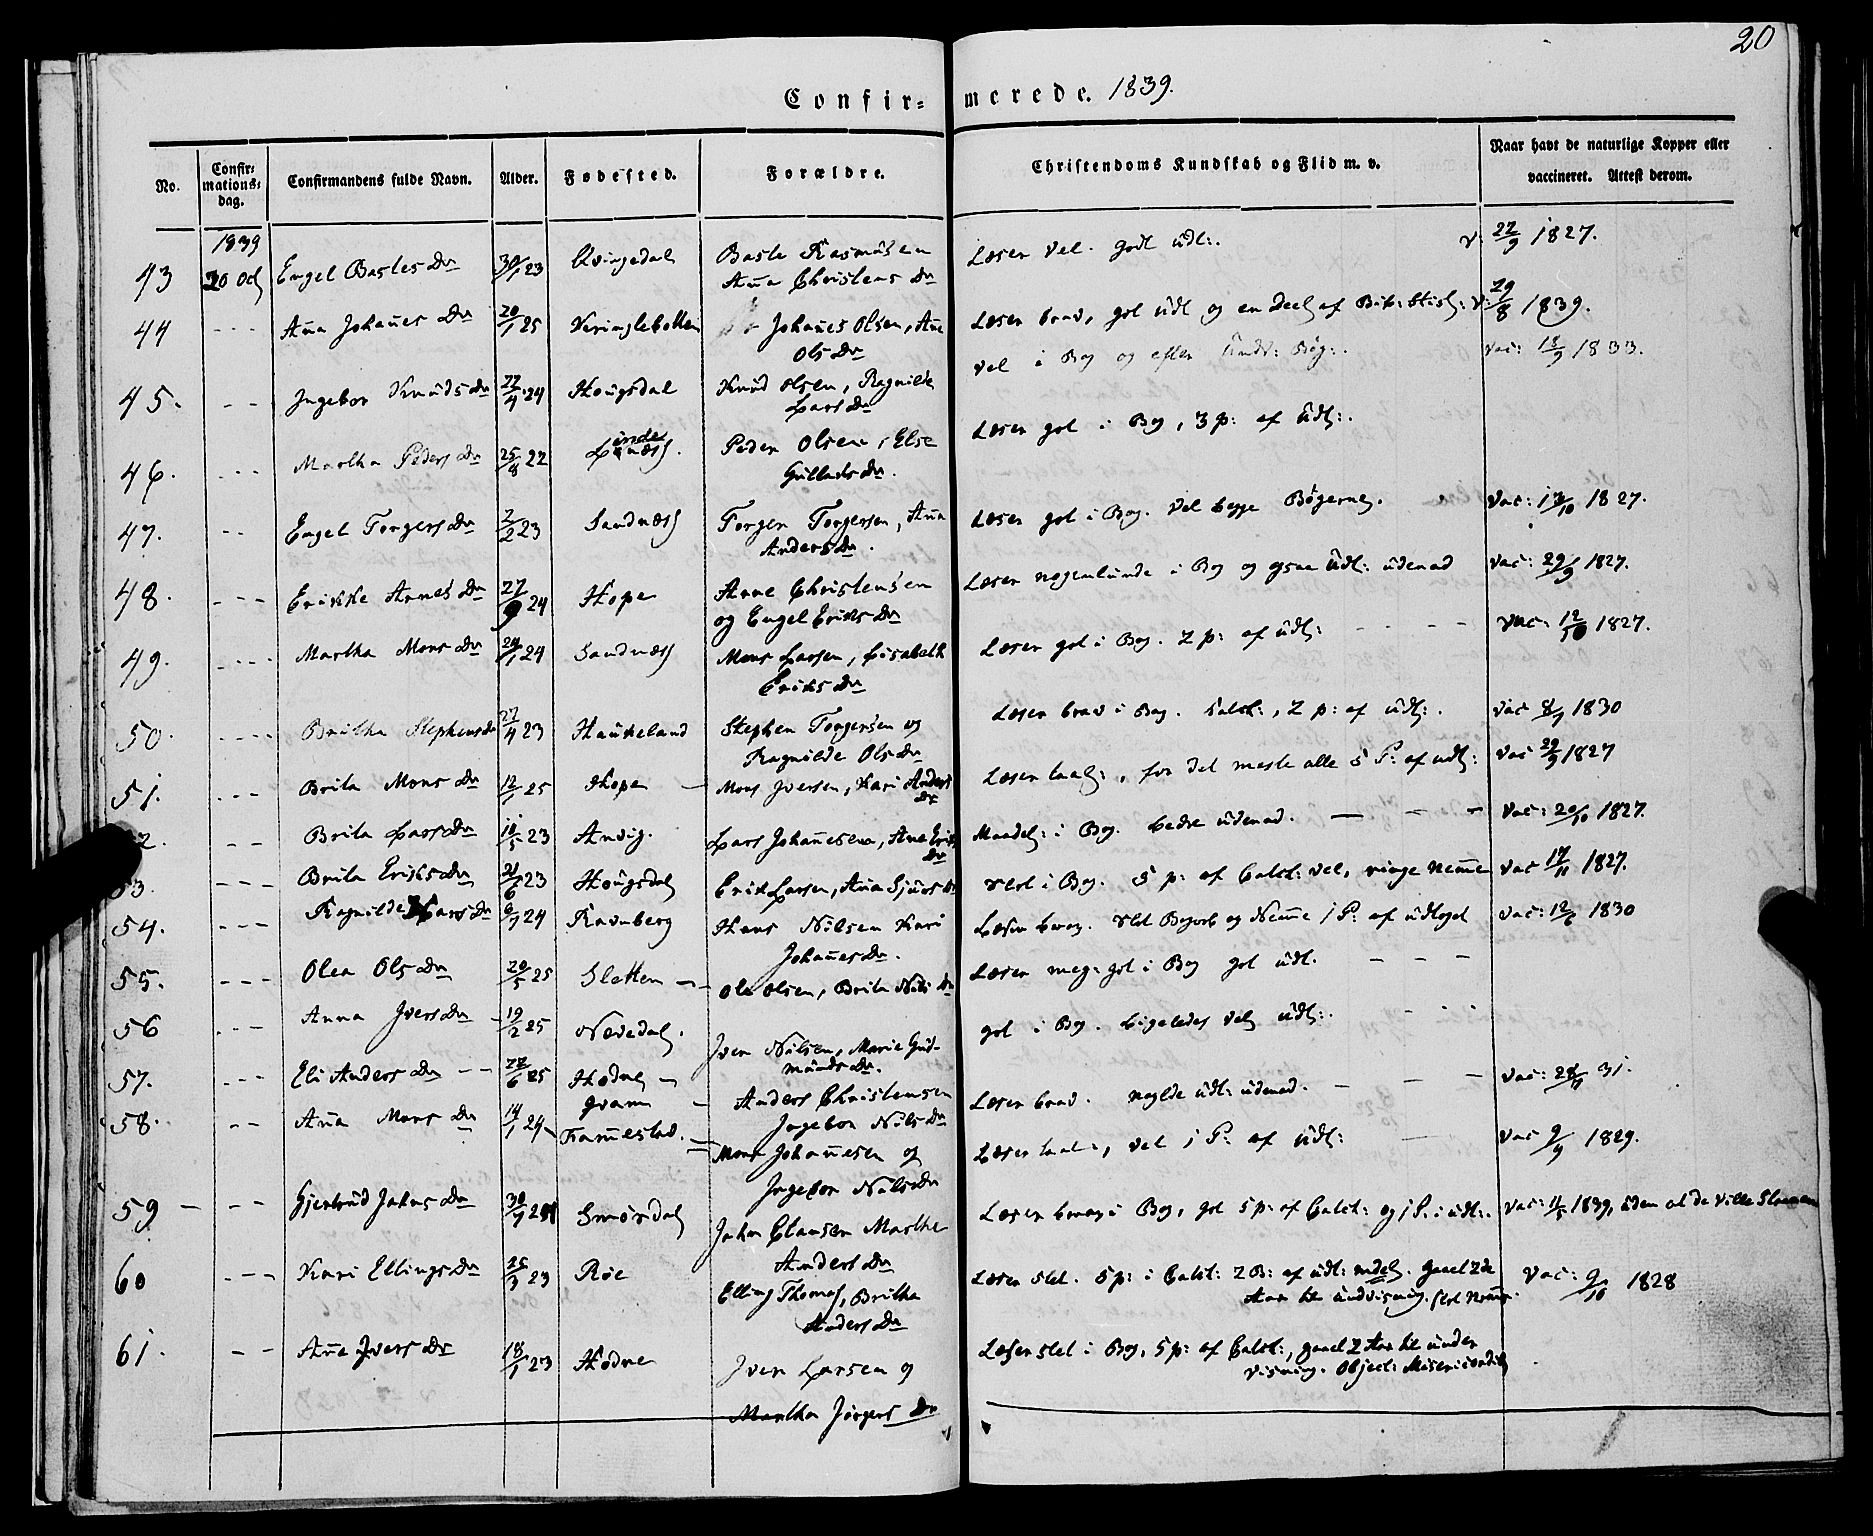 20
Confir= merede. 1839.
No.
Confir=
mations=
dag.
Confirmandens fulde Navn.
Alder.
Fødested.
Forældre.
Christendoms Kundskab og Flid m. v.
Naar havt de naturlige Kopper eller
vaccineret. Attest derom.
1839
43 30 Oct Engel Bastes Dr 30/1 23 Qvingedal Baste Rasmusen
Anna Christens Dr
Læser vel. godt Udt:. v: 22/9 1827.
44 - - - Anna Johannes Dr 20/1 25 Johannes Olsen, Ane
Ols Dr
Læser brav, got Udt og en Deel af Bib: Hist: v: 29/8 1839.
45. - - Ingebor Knuds Dr 22/4 24 Hougsdal Knud Olsen, Ragnilde
Lars Dr
vel i Bog og efter Bøg:. Vac: 18/9 1833.
46. - - - Martha Peders Dr 25/8 22 Peder Olsen, Else
Gullachs Dr.
Læser got i Bog, 3 p: af Udt:.
47. - - Engel Torgers Dr 2/2 23 Sandnæss Torger Torgersen, Anna
Anders Dr.
Læser got i Bog. Vel begge Bøgerne. Vac: 12/10 1827.
48. - - - Erikke Arnes Dr 27/9 24 Hope Arne Christensen
og Engel Eriks Dr
Læser nogenlunde i Bog og ogsaa Udt: udenad Vac: 29/9 1827.
49. - - - - Martha Mons Dr 24 Sandnæss Mons Larsen, Lisabeth
Eriks Dr
Læser got i Bog. 2 p: af Udt: - - - - Vac: 12/10 1827.
50. - - - - Britha Stephens Dr 27/4 23 Haukeland Stephen Torgersen og
Ragnilde Ols Dr
Læser brav i Bog. Catek:, 2 p: af Udt:. Vac 1830
51. - - - Brita Mons Dr 12/1 25 Hope - Mons Iversen, Kari Anders
Dr
Læser taal:, for det meste alle 5 P: af Udt: Vac 29/9 1827
2. - - Brita Lars Dr 18/5 23 Anvig. Lars Johannesen, Ane Eriks
Dr
Maadel: i Bog. bedre udenad. — - - Vac: 20/10 1827.
3. - - - Brita Eriks Dr 21/6 23 Hougsdal Erik Larsen, Anna Sjurs Dr
slet i Bog. 5 p: af Catek: vel, ringe Nemme Vac 17/11 1827.
54. - - - Ragnilde Hans Dr 24 Ravnberg Hans Nilsen Kari
Johannes Dr.
Læser svag. slet Begreb og Nemme 1 P: af Udtoget Vac: 12/6 1830
55. - - - Olea Ols Dr 20/5 25 Sletten - - Ole Olsen, Brita Nils Dr
Læser meg: got i Bog got Udt. - - -
56 - - - Anna Ivers Dr - 19/2 25 Nævedal. Iver Nilsen, Marie Gud-
munds Dr.
got i Bog. Ligeledes vel Udt:. - - -
57. - - - Eli Anders Dr - - 22/6 25 Hodne -
Anders Christensen
Ingebor Nils Dr
Læser brav. nogle Udt: udenad. - - - Vac: 28/9 31.
58. - - Anna Mons Dr 14/1 24 - Framestad. - Mons Johannesen og
Ingebor Nils Dr
Læser taal:, vel 1 P: af Udt: — Vac 9/9 1829.
59. - - - Gjertrud Jahns Dr Smørdal Jahn Clausen Marthe
Anders Dr
Læser i Bog, got 5 p: af Catek: og 1 P: i Udt:. Vac: 11/5 1839, uden at de ville
60 - - - Kari Ellings Dr 25/9 23 Røe Elling Thomas, Britha
Anders Dr
Læser slet. 5 p: i Catek: 2 B: af Udt: Gaaet 2de
Aar til Undviisning. slet Nemme. Vac: 9/10 1828
61. - - Ane Ivers Dr 18/1 23 Hodne Iver Larsen og
Martha Jørgens Dr
Læser slet i Bog, 5 p: af Catek:, gaaet 2 Aar til under
visning. Object: Misericordiæ